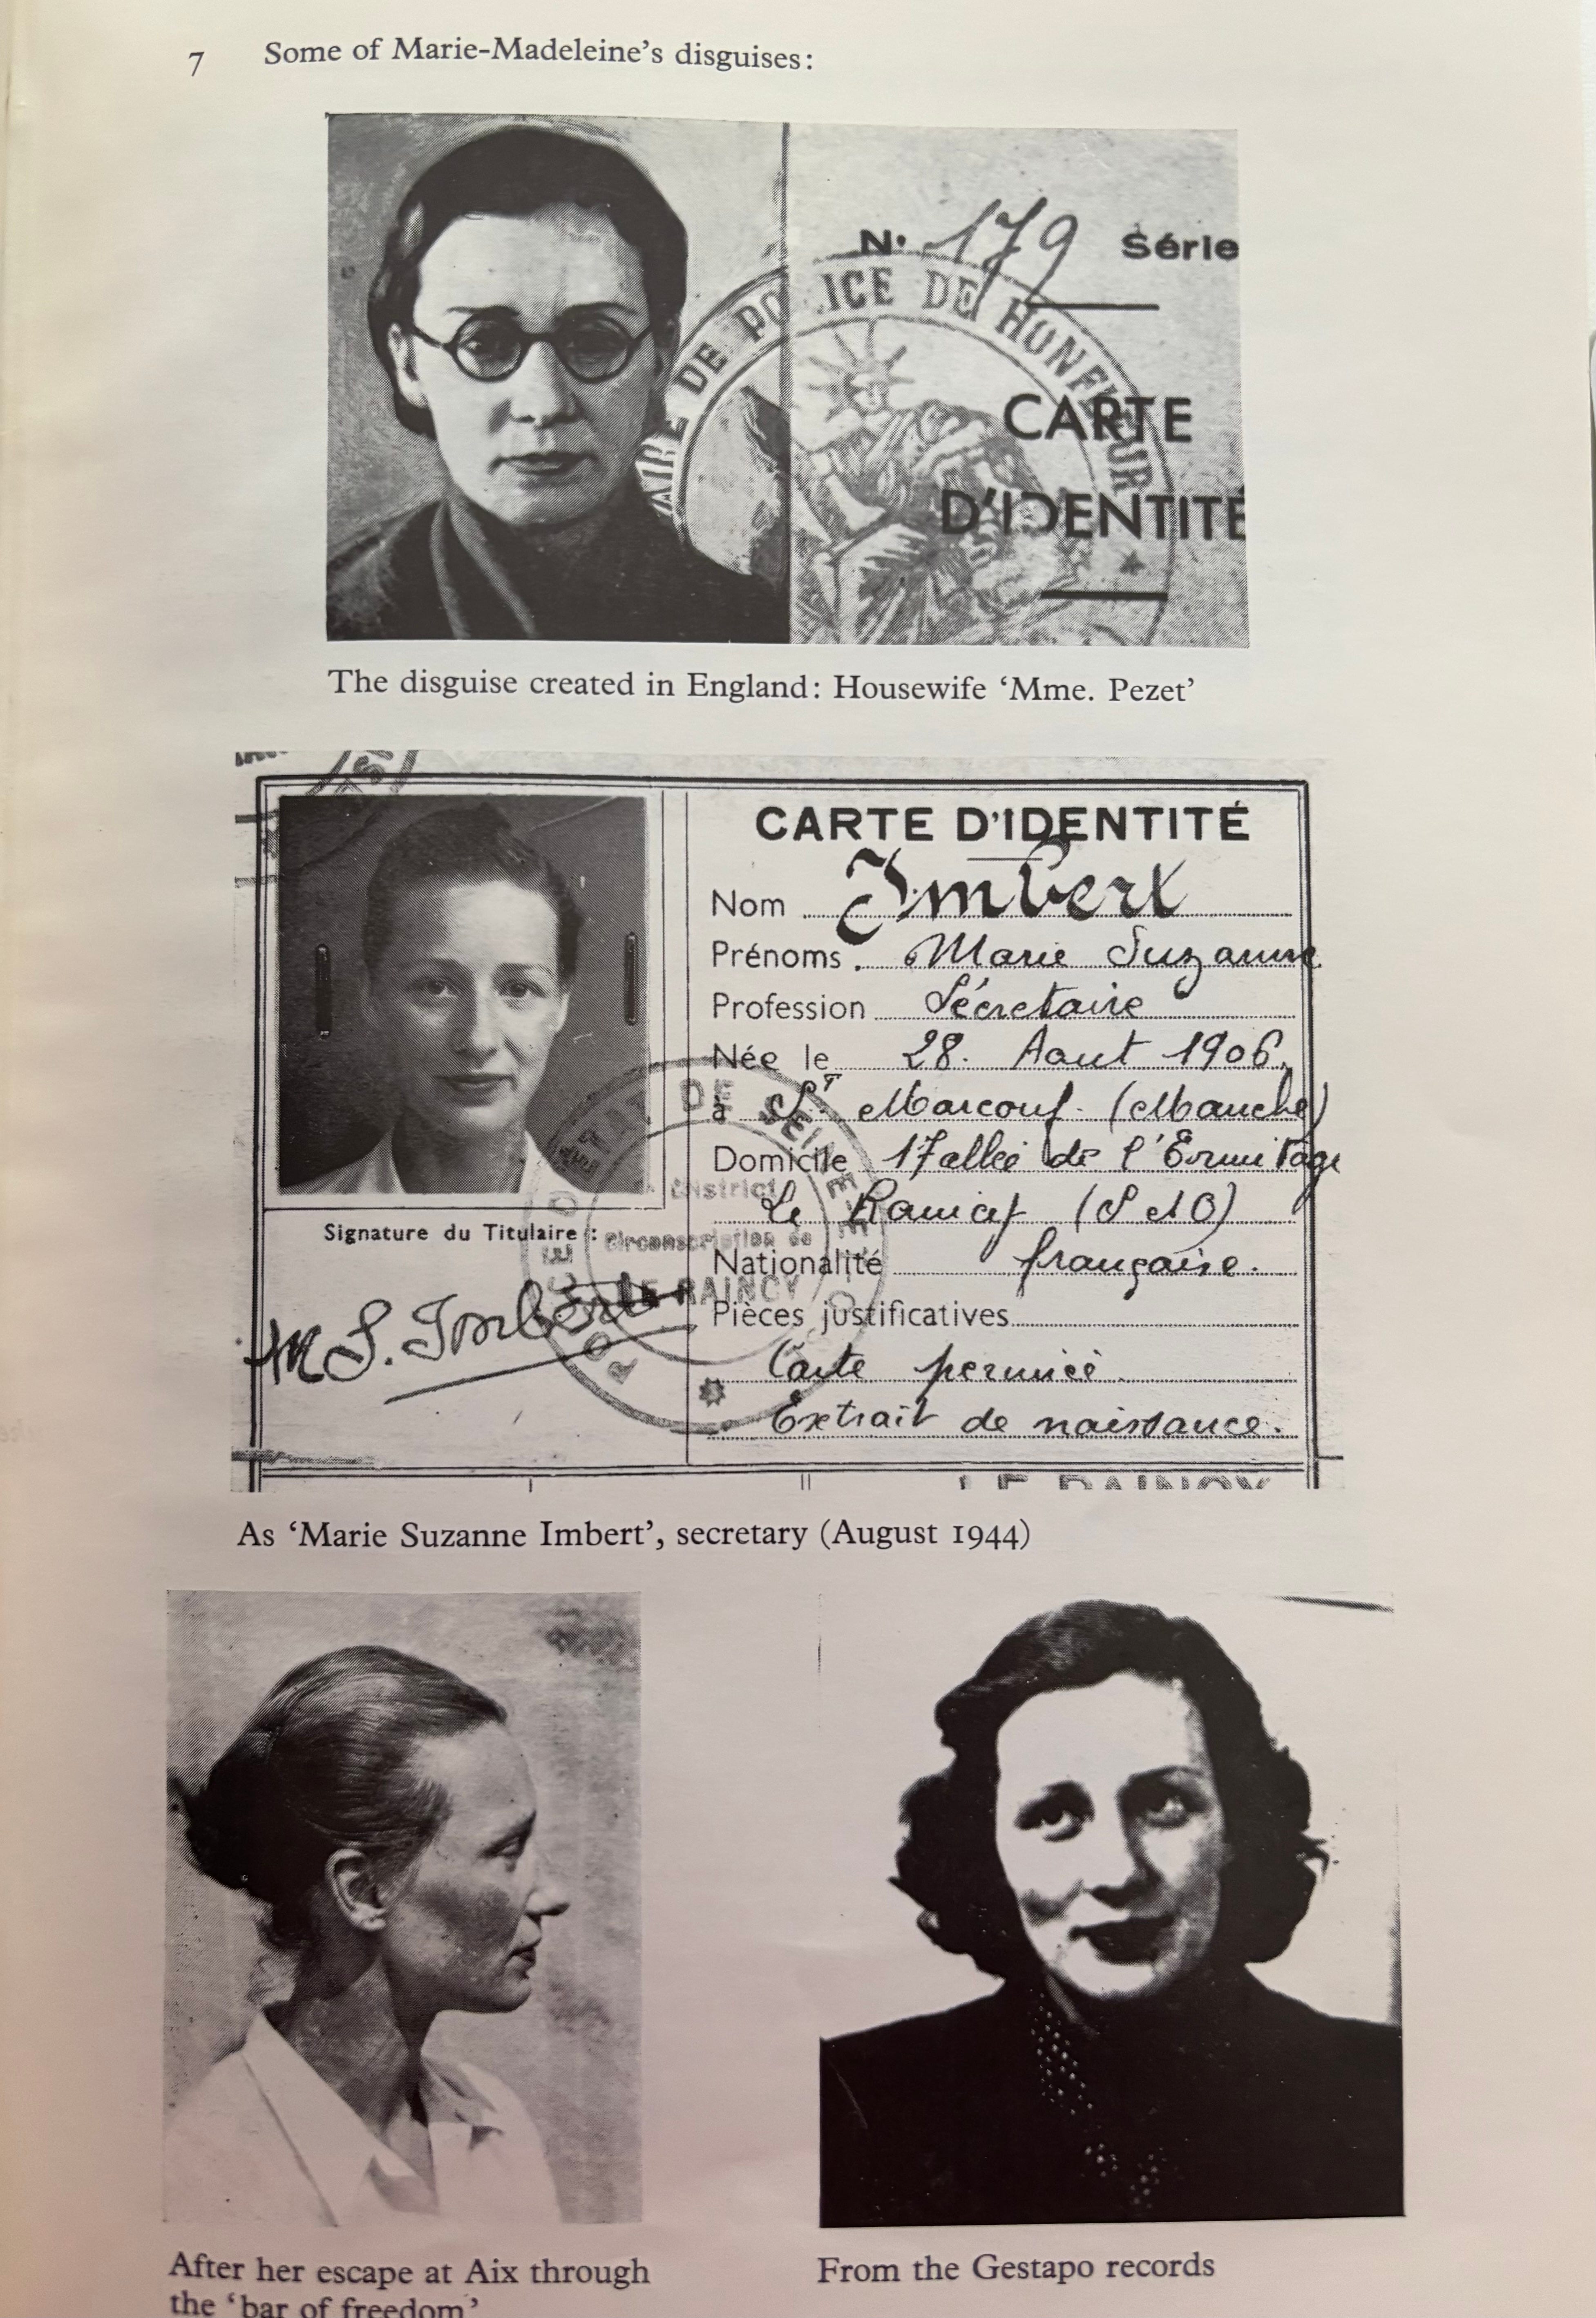 7 Some of Marie-Madeleine's disguises:
Nº 179 Série
AIRE DE POLICE DE HONFLEUR
CARTE
D'IDENTITÉ
The disguise created in England: Housewife 'Mme. Pezet'
CARTE D'IDENTITÉ
Nom Imbert
Prénoms. Marie Suzanne
Profession Sécretaire
Née le 28. Aout 1906.
à St Marcouf. (Manche)
Domicile 17 allée de l'Ermitage
Le Raincy (S et O)
Nationalité française.
Pièces justificatives
Carte
Extrait de naissance.
Signature du Titulaire :
M S. Imbert
DE SEINE
District
Circonscription de
LE RAINCY
LE RAINCY
As 'Marie Suzanne Imbert', secretary (August 1944)
After her escape at Aix through
the 'bar of freedom'
From the Gestapo records